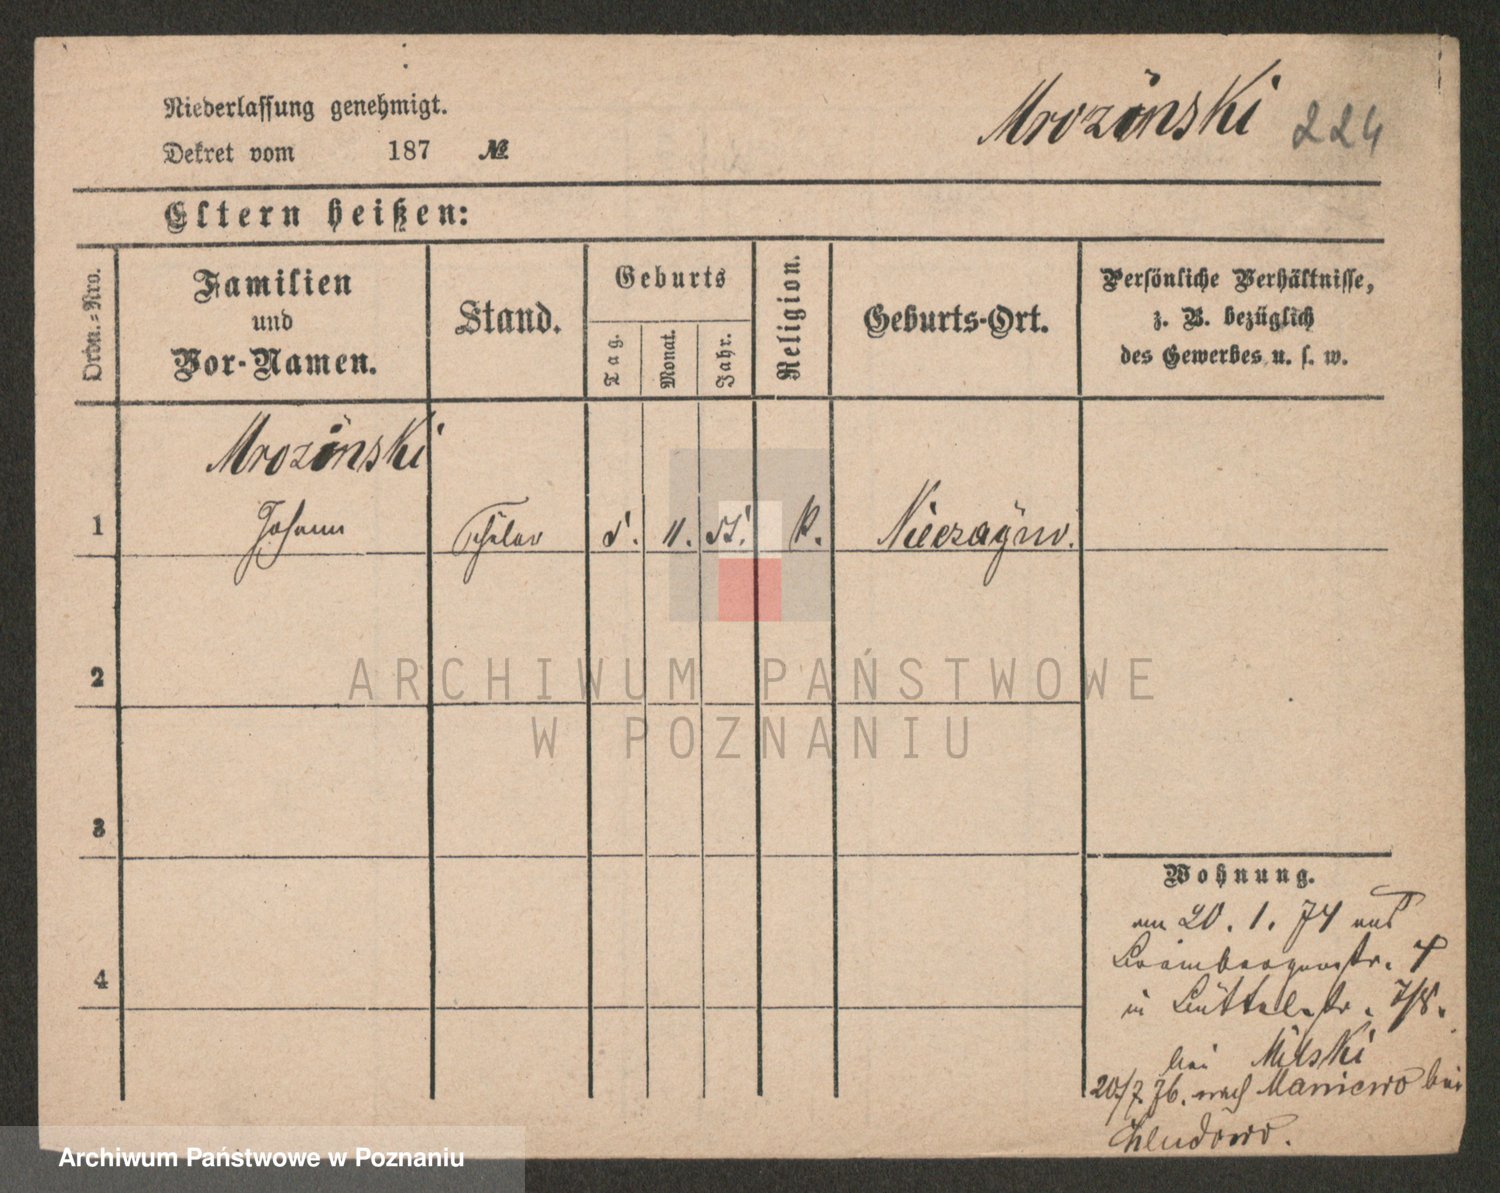 Niederlassung genehmigt.
Mrozinski 224
Dekret vom 187 №
Eltern heißen:
Ordn.-Nro.
Familien
und
Vor-Namen.
Stand.
Geburts
Tag.
Monat.
Jahr.
Religion.
Geburts-Ort.
Persönliche Verhältnisse,
z. B. bezüglich
des Gewerbes u. s. w.
Mrozinski
1 Johann Schüler 5. 11. 55. K.
2
3
4
Wohnung.
am 20. 1. 74 aus
in Büttelstr. 7/8.
bei Milski
20/7 76. nach Maniewo bei
ARCHIWUM PAŃSTWOWE
W POZNANIU
Archiwum Państwowe w Poznaniu